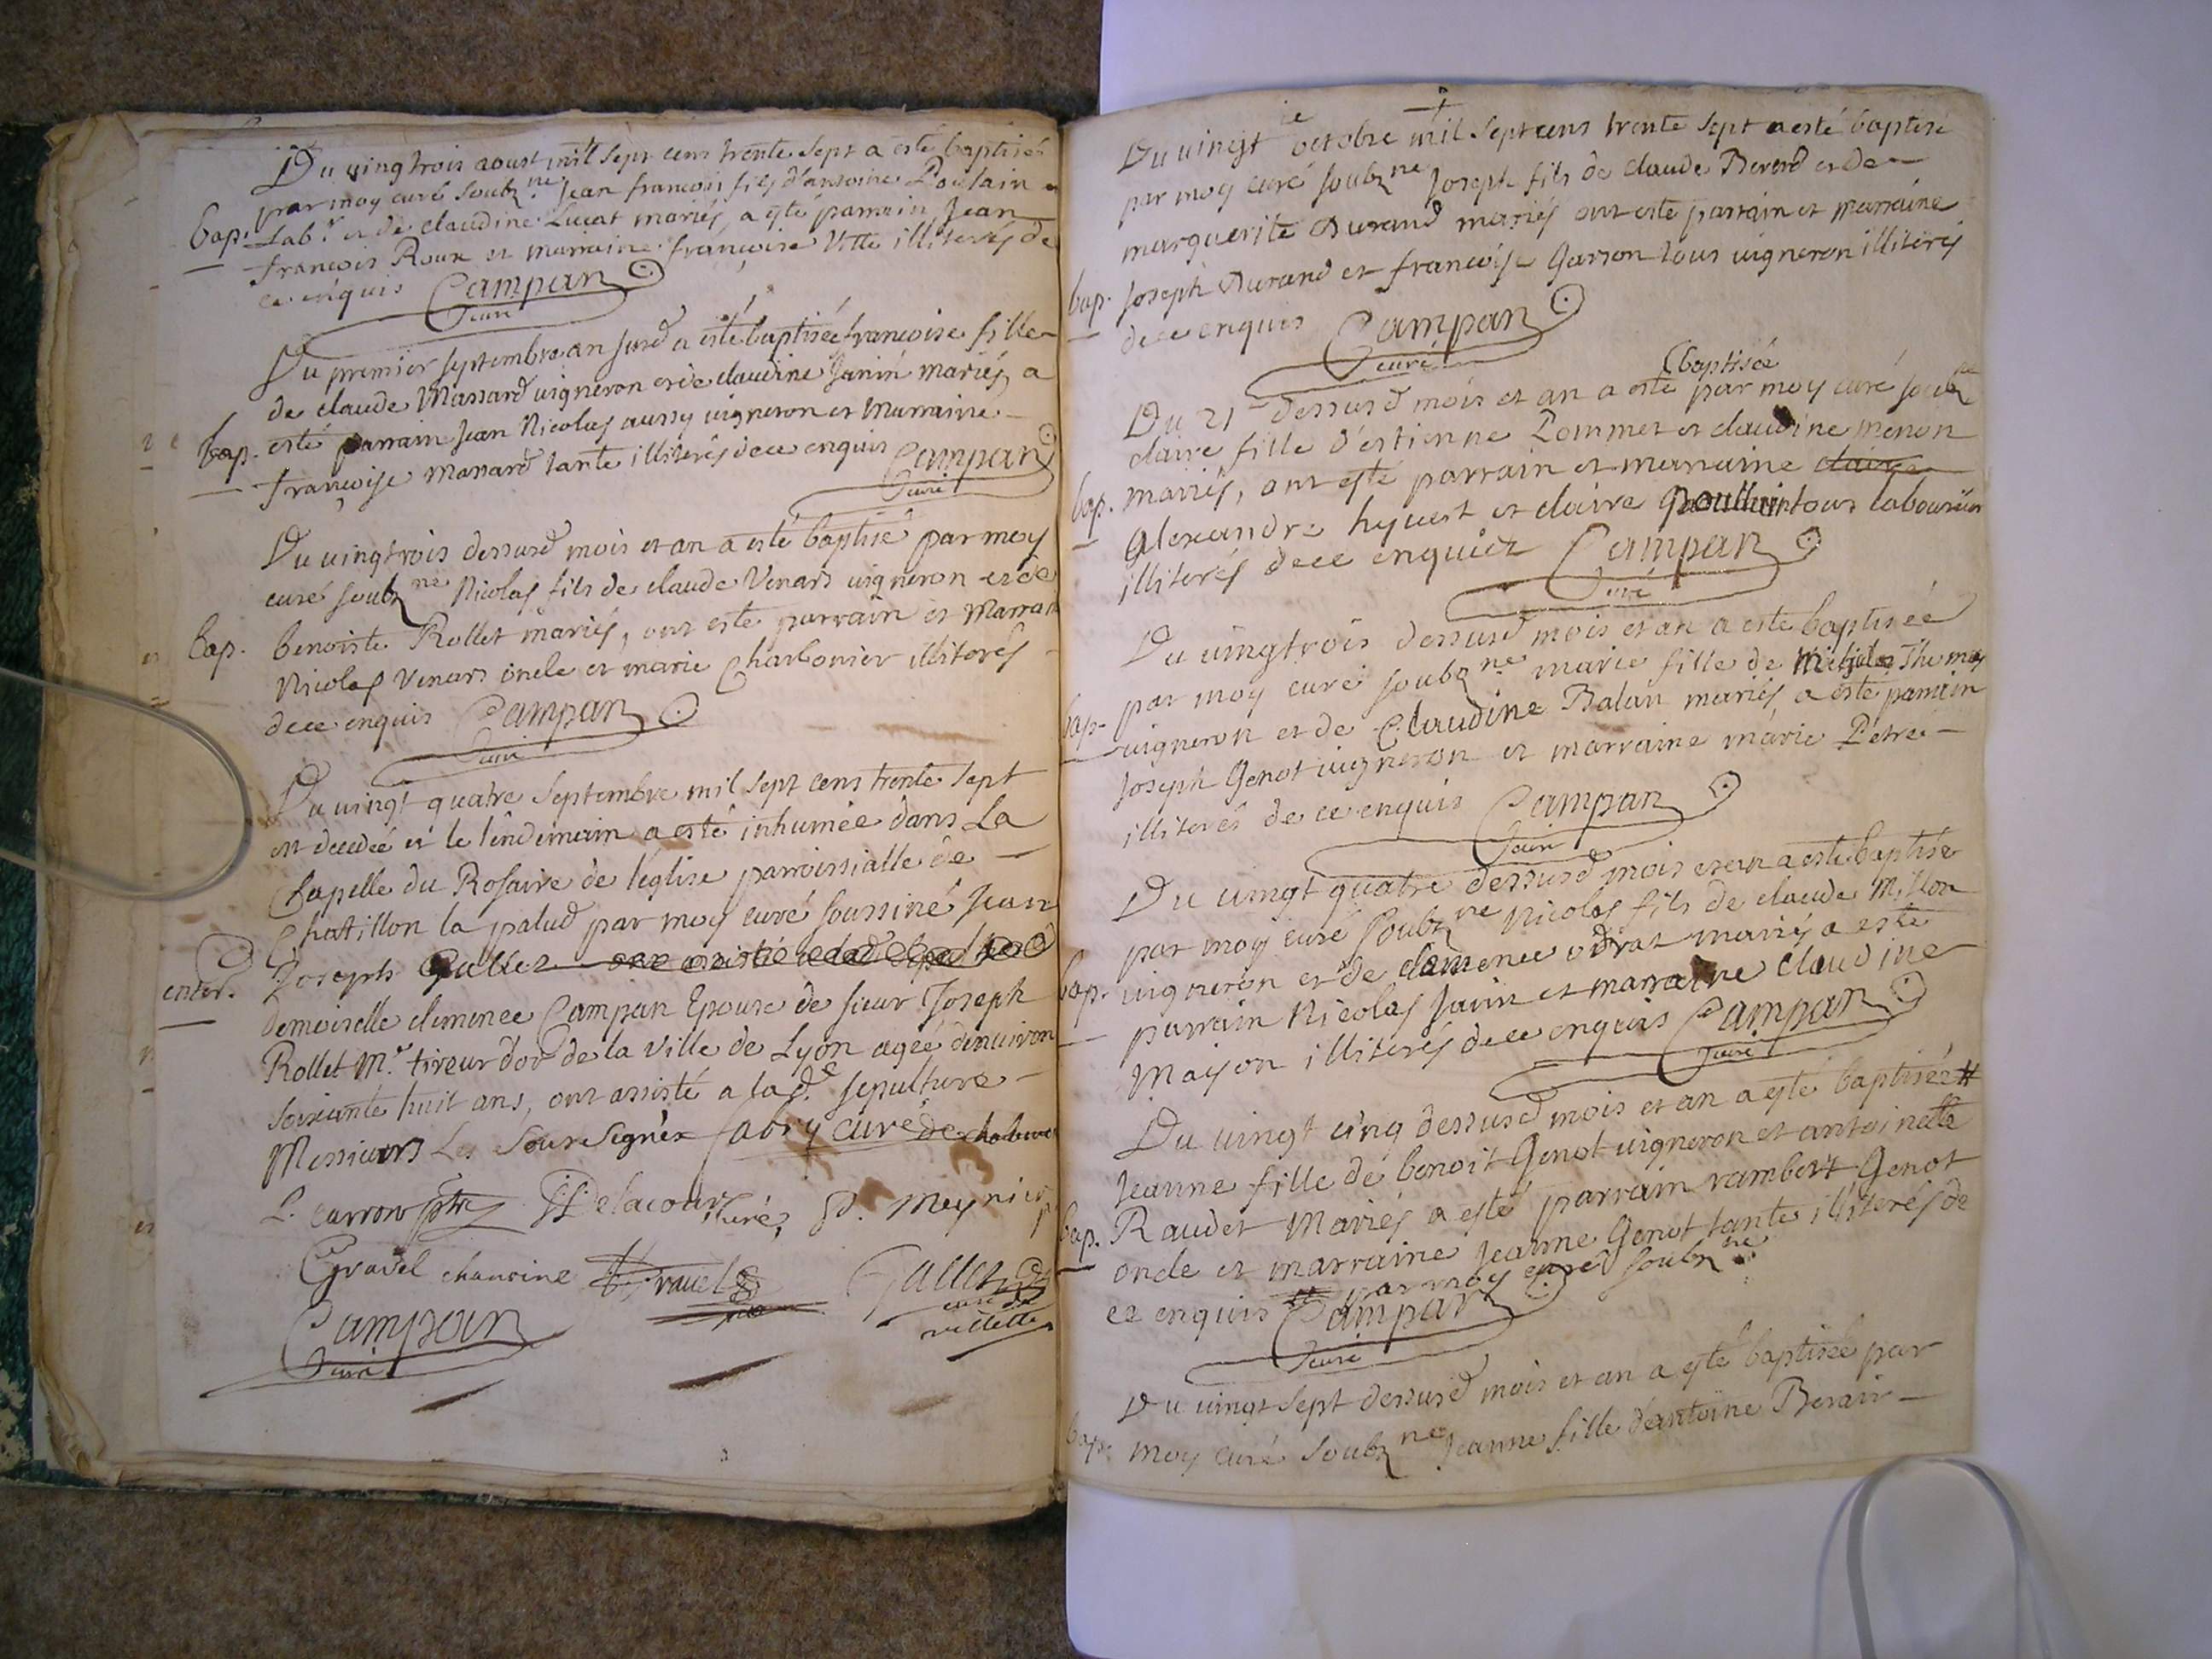 Du vingtrois aoust mil sept cens trente sept a esté baptisé
par moy curé soubz.ne Jean francois fils d'antoine Poulain
bap. Lab.r et de claudine Lucat mariés, a esté parrain Jean
francois Roux et marraine françoise Vitte illiterés de
ce enquis Campan
curé
Du premier septembre an susd a esté baptisée francoise fille
de claude Massard vigneron et de claudine Janin mariés, a
bap. esté parrain Jean Nicolas aussy vigneron et marraine
françoise massard tante illiterés de ce enquis Campan
curé
Du vingtrois dessusd mois et an a esté baptisé par moy
curé soubz ne Nicolas fils de claude Venars vigneron et de
bap. benoiste Rollet mariés, ont esté parrain et marrai
Nicolas Venars oncle et marie Charbonier illiterés
de ce enquis Campan
curé
Du vingt quatre septembre mil sept cens trente sept
est decedée et le lendemain a esté inhumée dans La
Chapelle du Rosaire de léglise parroissialle de
Chatillon la palud par moy curé soussiné Jean
enter. Joseph Gallez
demoiselle climenee Campan Epouse de sieur Joseph
Rollet M.r tireur dor de la ville de Lyon agée denviron
soixante huit ans, ont assisté a lad.e sepulture
Messieurs Les Soussegnés fabry curé de
L. carron ptre Delacour curé, meynier
Gravel chanoine Gravel Gallez
curé de
villette
Campan
curé
Du vingt ie octobre mil sept cens trente sept a esté baptisé
par moy curé soubz ne Joseph fils de claude Bererd et de
marguerite Durand mariés ont esté parrain et marraine
bap. Joseph Durand et françoise Garson tous vigneron illiterés
de ce enquis Campan
curé
baptisée
Du 21 dessusd mois et an a esté par moy curé soubz ne
claire fille d'estienne Pommet et claudine menon
bap. mariés, ont esté parrain et marraine claire
Alexandre hyvert et claire tous laboureurs
illiterés de ce enquiet Campan
curé
Du vingtrois dessusd mois et an a esté baptisée
par moy curé soubz ne marie fille de Thomas
bap. vigneron et de Claudine Balan mariés, a esté parrain
Joseph Genot vigneron et marraine marie Petree
illiterés de ce enquis Campan
curé
Du vingt quatre dessusd mois et an a esté baptisé
par moy curé soubz ne Nicolas fils de claude Millon
bap. vigneron et de clemence odrat mariés a esté
parrain Nicolas Janin et marraine claudine
Mayson illiterés de ce enquis Campan
curé
Du vingt cinq dessusd mois et an a esté baptisée #
Jeanne fille de benoit Genot vigneron et antoinette
bap. Raudet mariés a esté parrain rambert Genot
oncle et marraine Jeanne Genot tante illiterés de
ce enquis # par moy curé soubz ne
Campan
curé
Du vingt sept dessusd mois et an a esté baptisée par
bap. moy curé soubz ne Jeanne fille d'antoine Berair